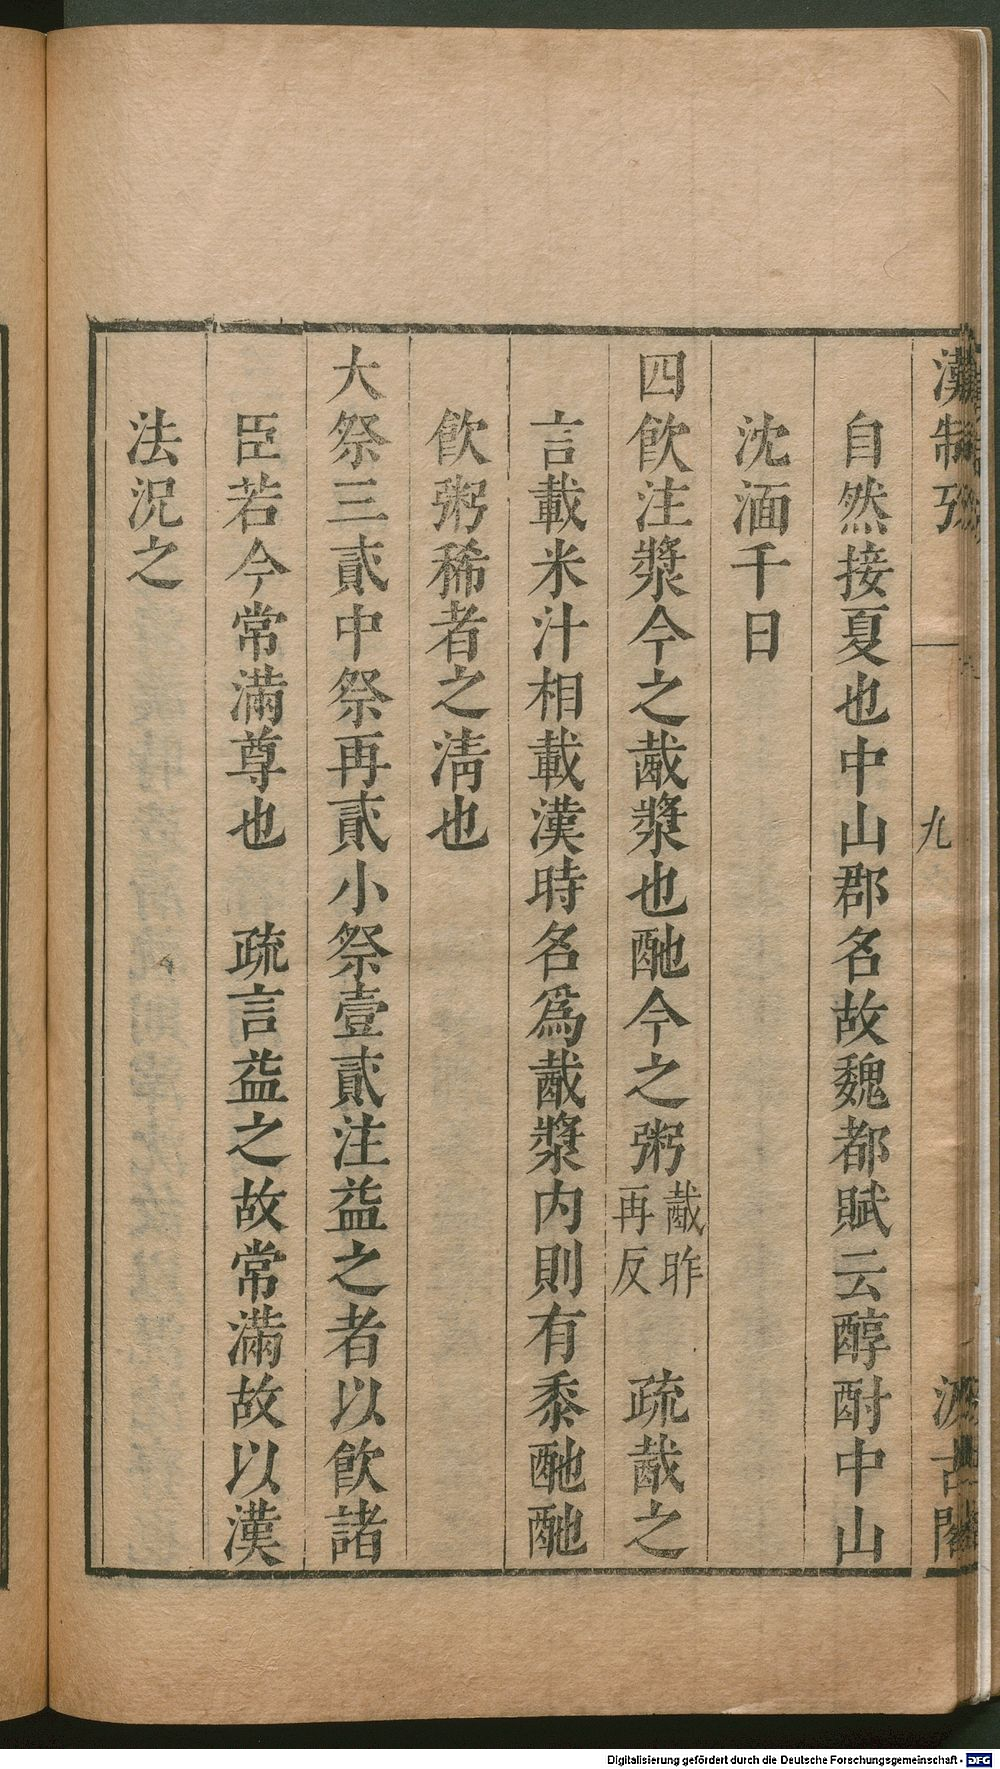 漢制攷
九
汲古閣
自然接夏也中山郡名故魏都賦云醇酎中山
沈湎千日
四飲注漿今之䣧漿也酏今之粥䣧昨再反　疏䣧之
言載米汁相載漢時名為䣧漿内則有黍酏酏
飲粥稀者之清也
大祭三貳中祭再貳小祭壹貳注益之者以飲諸
臣若今常滿尊也　疏言益之故常滿故以漢
法況之
Digitalisierung gefördert durch die Deutsche Forschungsgemeinschaft - DFG